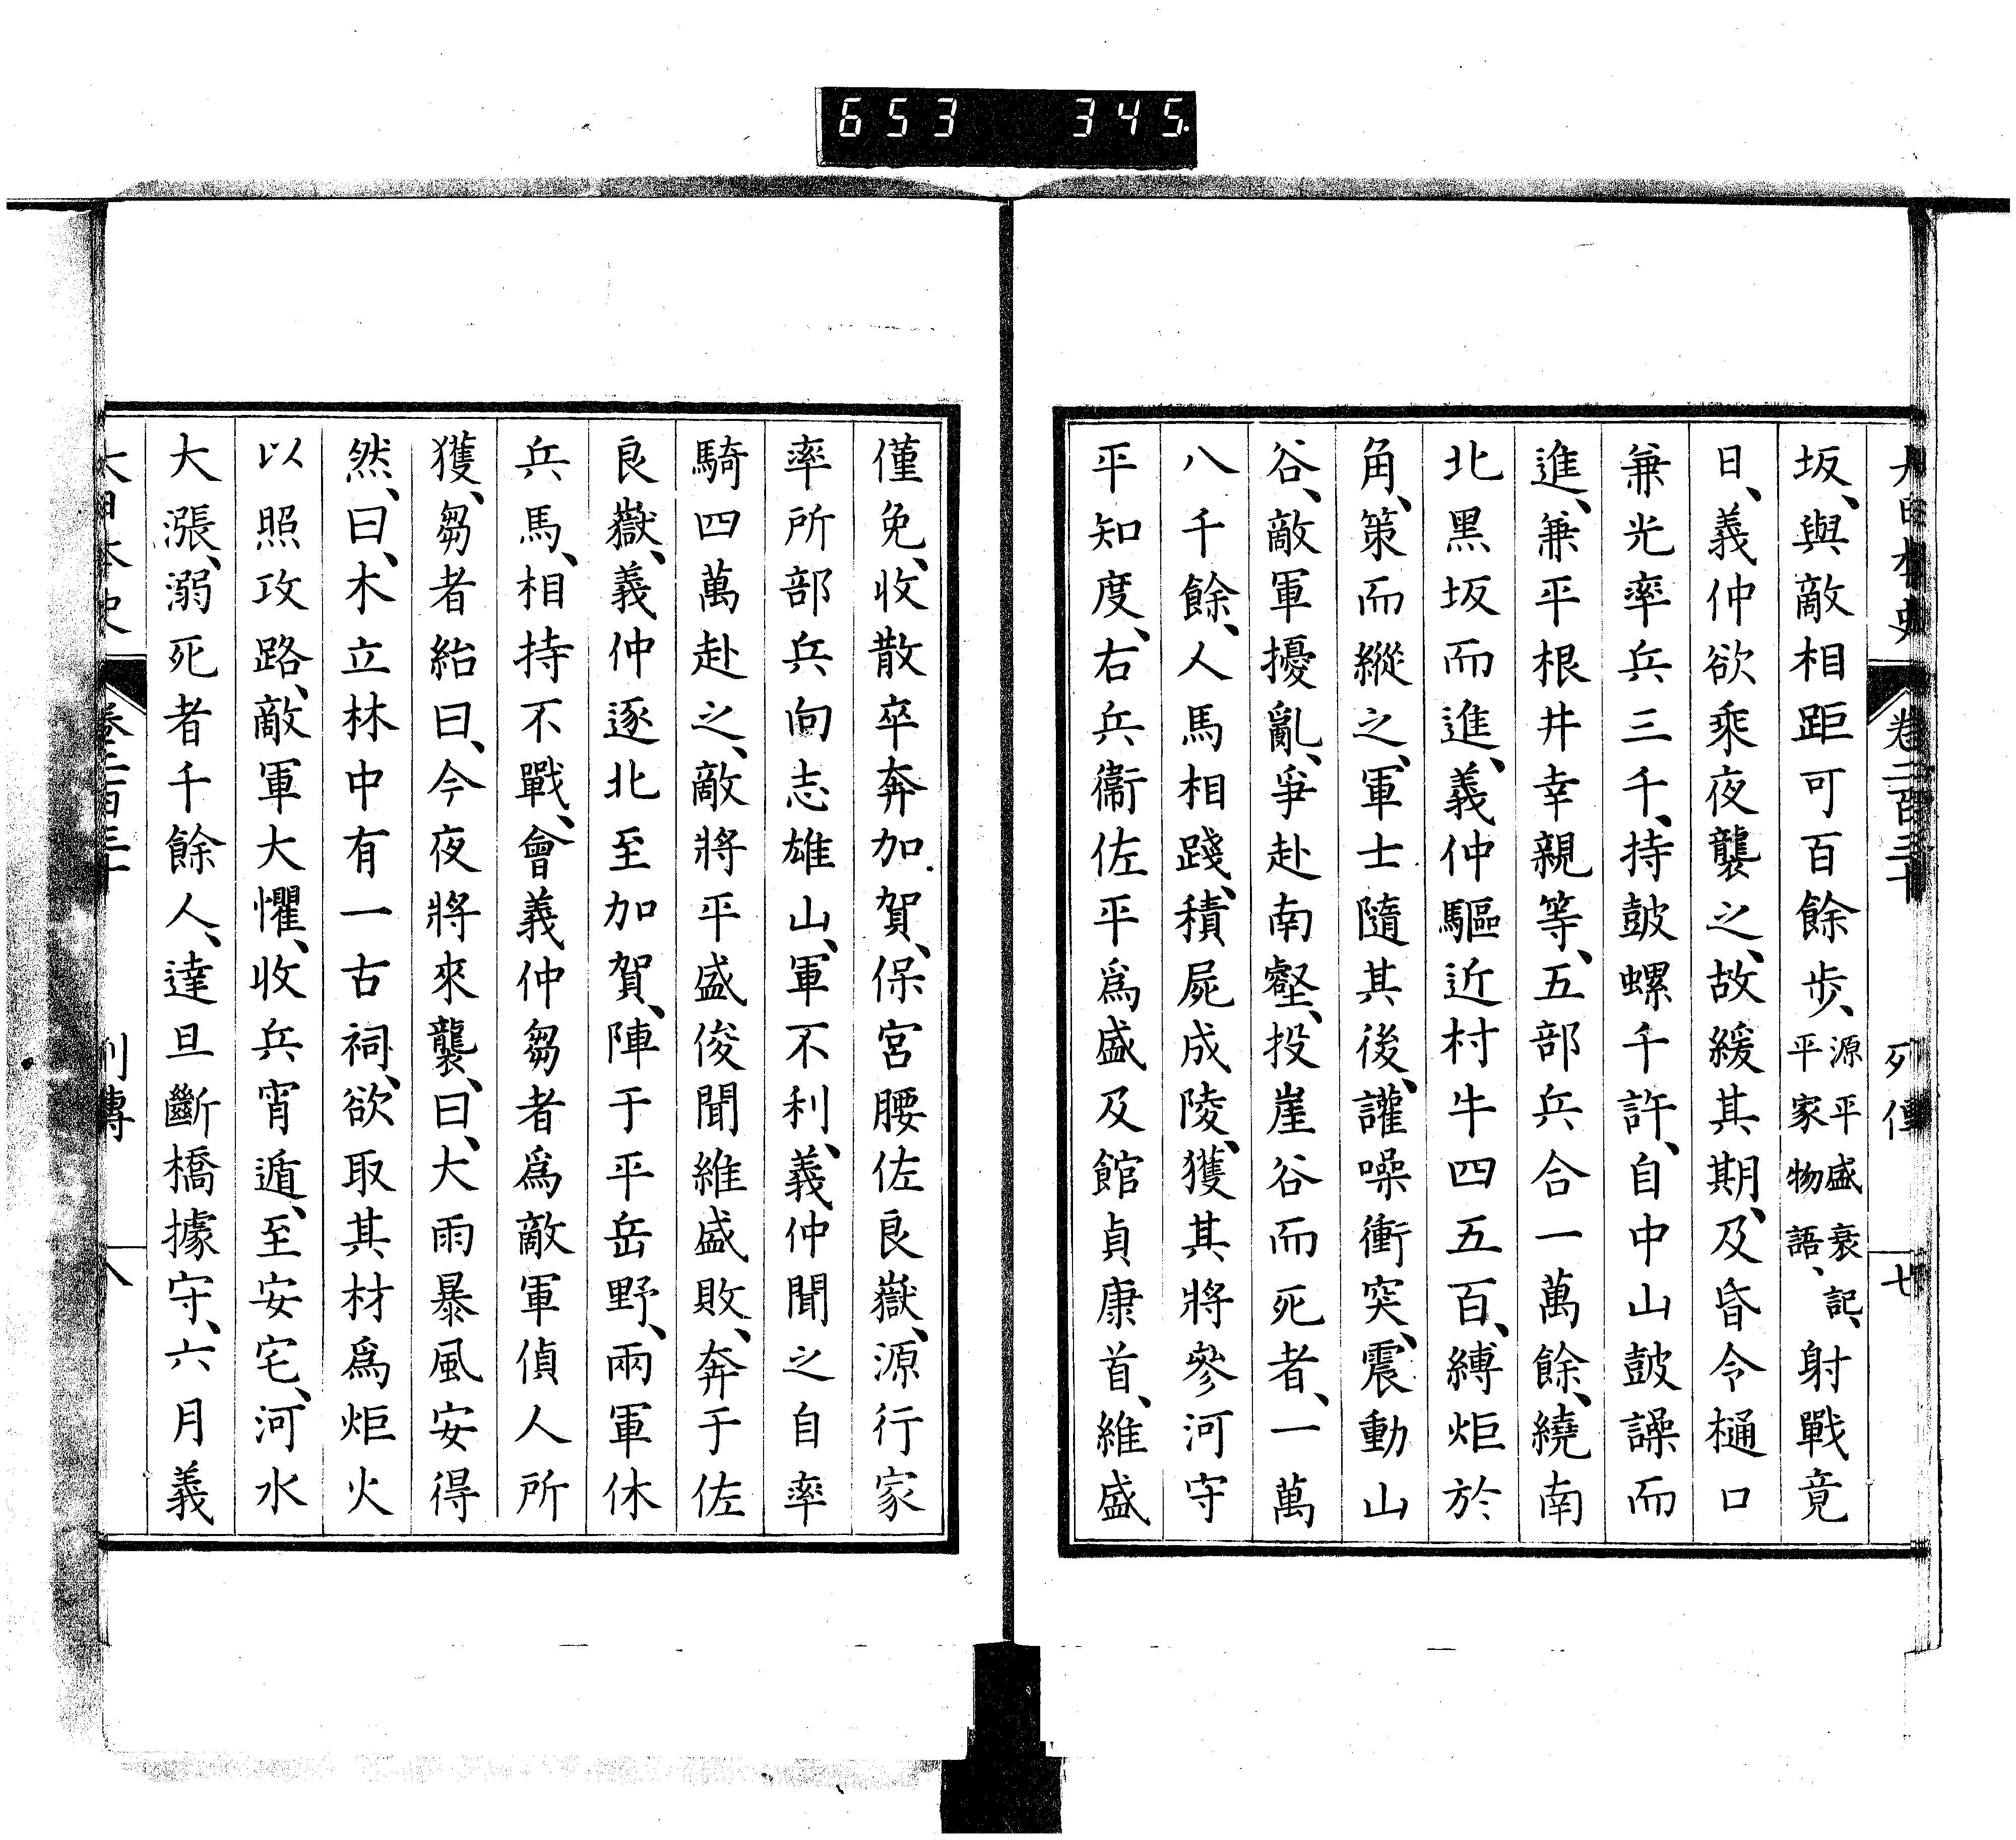 653 345
大日本史 卷二百三十 列傳 七
坂、與敵相距可百餘步、源平盛衰記、平家物語、射戰竟
日、義仲欲乘夜襲之、故緩其期、及昏令樋口
兼光率兵三千、持鼓螺千許、自中山鼓譟而
進、兼平根井幸親等、五部兵合一萬餘、繞南
北黑坂而進、義仲驅近村牛四五百、縛炬於
角、策而縱之、軍士隨其後、讙噪衝突、震動山
谷、敵軍擾亂、爭赴南壑、投崖谷而死者、一萬
八千餘、人馬相踐、積屍成陵、獲其將參河守
平知度、右兵衞佐平爲盛及館貞康首、維盛
僅免、收散卒奔加賀、保宮腰佐良嶽、源行家
率所部兵向志雄山、軍不利、義仲聞之自率
騎四萬赴之、敵將平盛俊聞維盛敗、奔于佐
良嶽、義仲逐北至加賀、陣于平岳野、兩軍休
兵馬、相持不戰、會義仲芻者爲敵軍偵人所
獲、芻者紿曰、今夜將來襲、曰、大雨暴風安得
然、曰、木立林中有一古祠、欲取其材爲炬火
以照攻路、敵軍大懼、收兵宵遁、至安宅、河水
大漲、溺死者千餘人、達旦斷橋據守、六月義
大日本史 卷二百三十 列傳 八